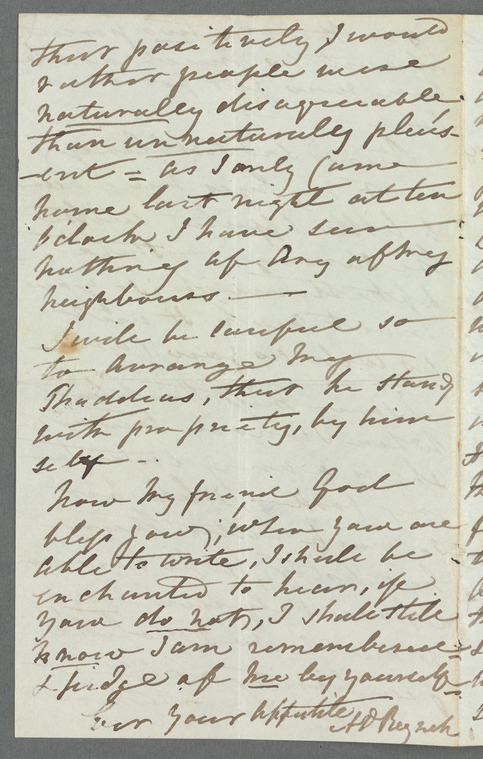 that positively I would
rather people were
naturally disagreeable
than unnaturally pleas-
-ent = as I only came
home last night at ten
o'clock I have seen
nothing of any of my
neighbours —
I will be careful so
to arrange my
Thaddeus, that he stands
with propriety, by him
self -.
Now my friend God
bless you; when you are
able to write, I shall be
enchanted to hear, if
you do not, I shall still
know I am remembered =
& judge of me by yourself =
Your appetite